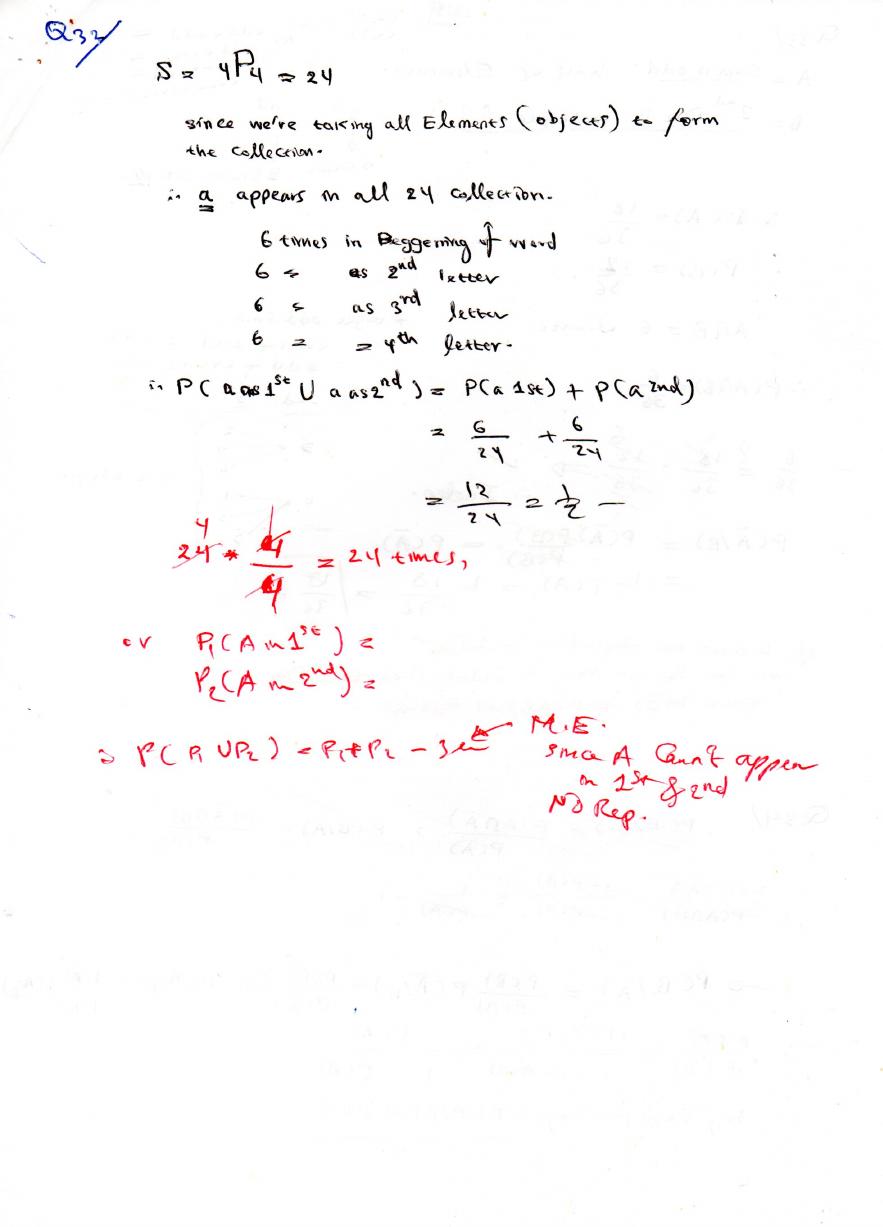 Q32/
S = 4P4 = 24
since we're taking all Elements (objects) to form
the collection.
∴ a appears in all 24 collection.
6 times in Beggening of word
6 = as 2nd letter
6 = as 3rd letter
6 = = 4th letter.
∴ P(a as 1st ∪ a as 2nd) = P(a 1st) + P(a 2nd)
= 6/24 + 6/24
= 12/24 = 1/2 —
4
24 * 4/4 = 24 times,
or P1(A in 1st) =
P2(A in 2nd) =
M.E.
∴ P(P1 ∪ P2) = P1 + P2 -
since A Cann't appear
in 1st & 2nd
NO Rep.